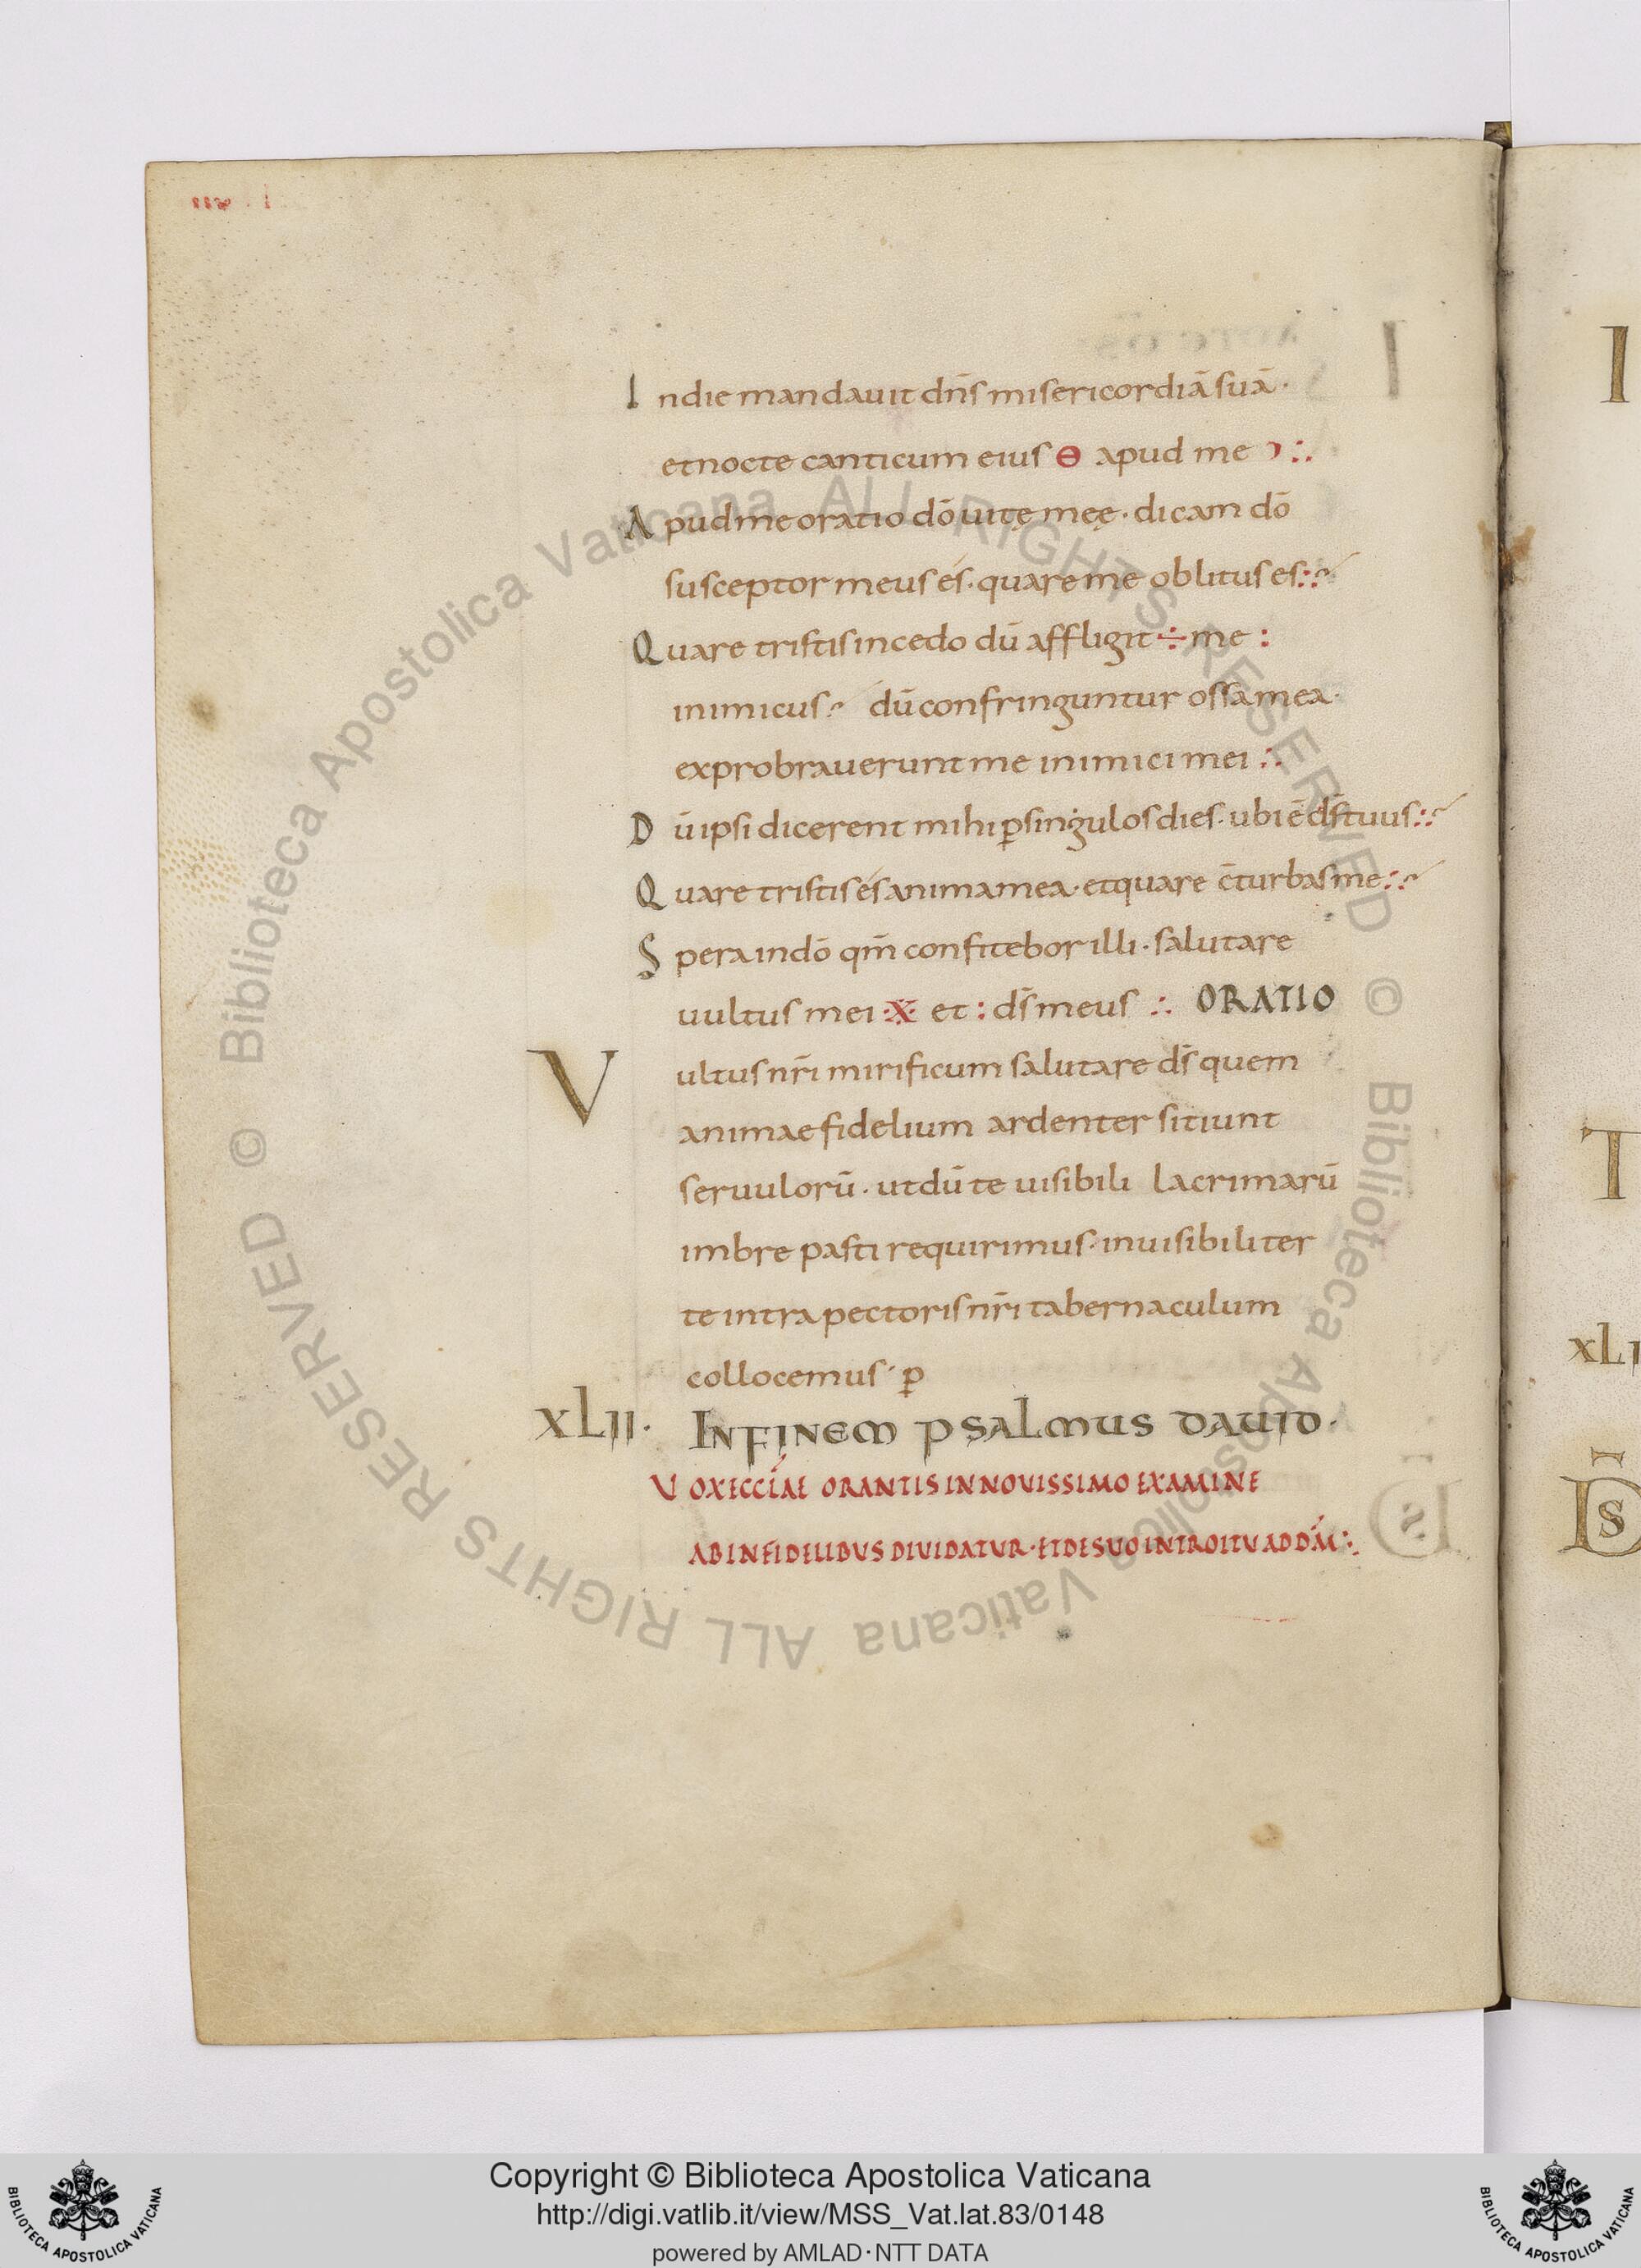 In die mandauit dñs misericordiā suā ·
et nocte canticum eius Θ apud me :·
Apud me oratio dō uitę meę · dicam dō
susceptor meus és · quare me oblitus es:
Quare tristis incedo dū affligit ÷ me :
inimicus · dū confringuntur ossa mea ·
exprobrauerunt me inimici mei :·
Dū ipsi dicerent mihi ꝑ singulos dies · ubi ē dš tuus:
Quare tristis és anima mea · et quare c̄turbas me:
Spera in dō qm̄ confitebor illi · salutare
uultus mei ※ et : dš meus :· ORATIO
Vultus nr̄i mirificum salutare dš quem
animae fidelium ardenter sitiunt
seruulorū · ut dū te uisibili lacrimarū
imbre pasti requirimus · inuisibiliter
te intra pectoris nr̄i tabernaculum
collocemus · ꝑ
XLII · IN FINEM PSALMUS DAVID ·
VOX ECCĹAE ORANTIS IN NOVISSIMO EXAMINE
AB INFIDELIBUS DIVIDATUR · ET DE SUO INTROITU AD DM̄ :·
I
T
XLI
D̄S
© Biblioteca Apostolica Vaticana ALL RIGHTS RESERVED © Biblioteca Apostolica Vaticana ALL RIGHTS RESERVED
Copyright © Biblioteca Apostolica Vaticana
http://digi.vatlib.it/view/MSS_Vat.lat.83/0148
powered by AMLAD·NTT DATA
BIBLIOTECA APOSTOLICA VATICANA
BIBLIOTECA APOSTOLICA VATICANA